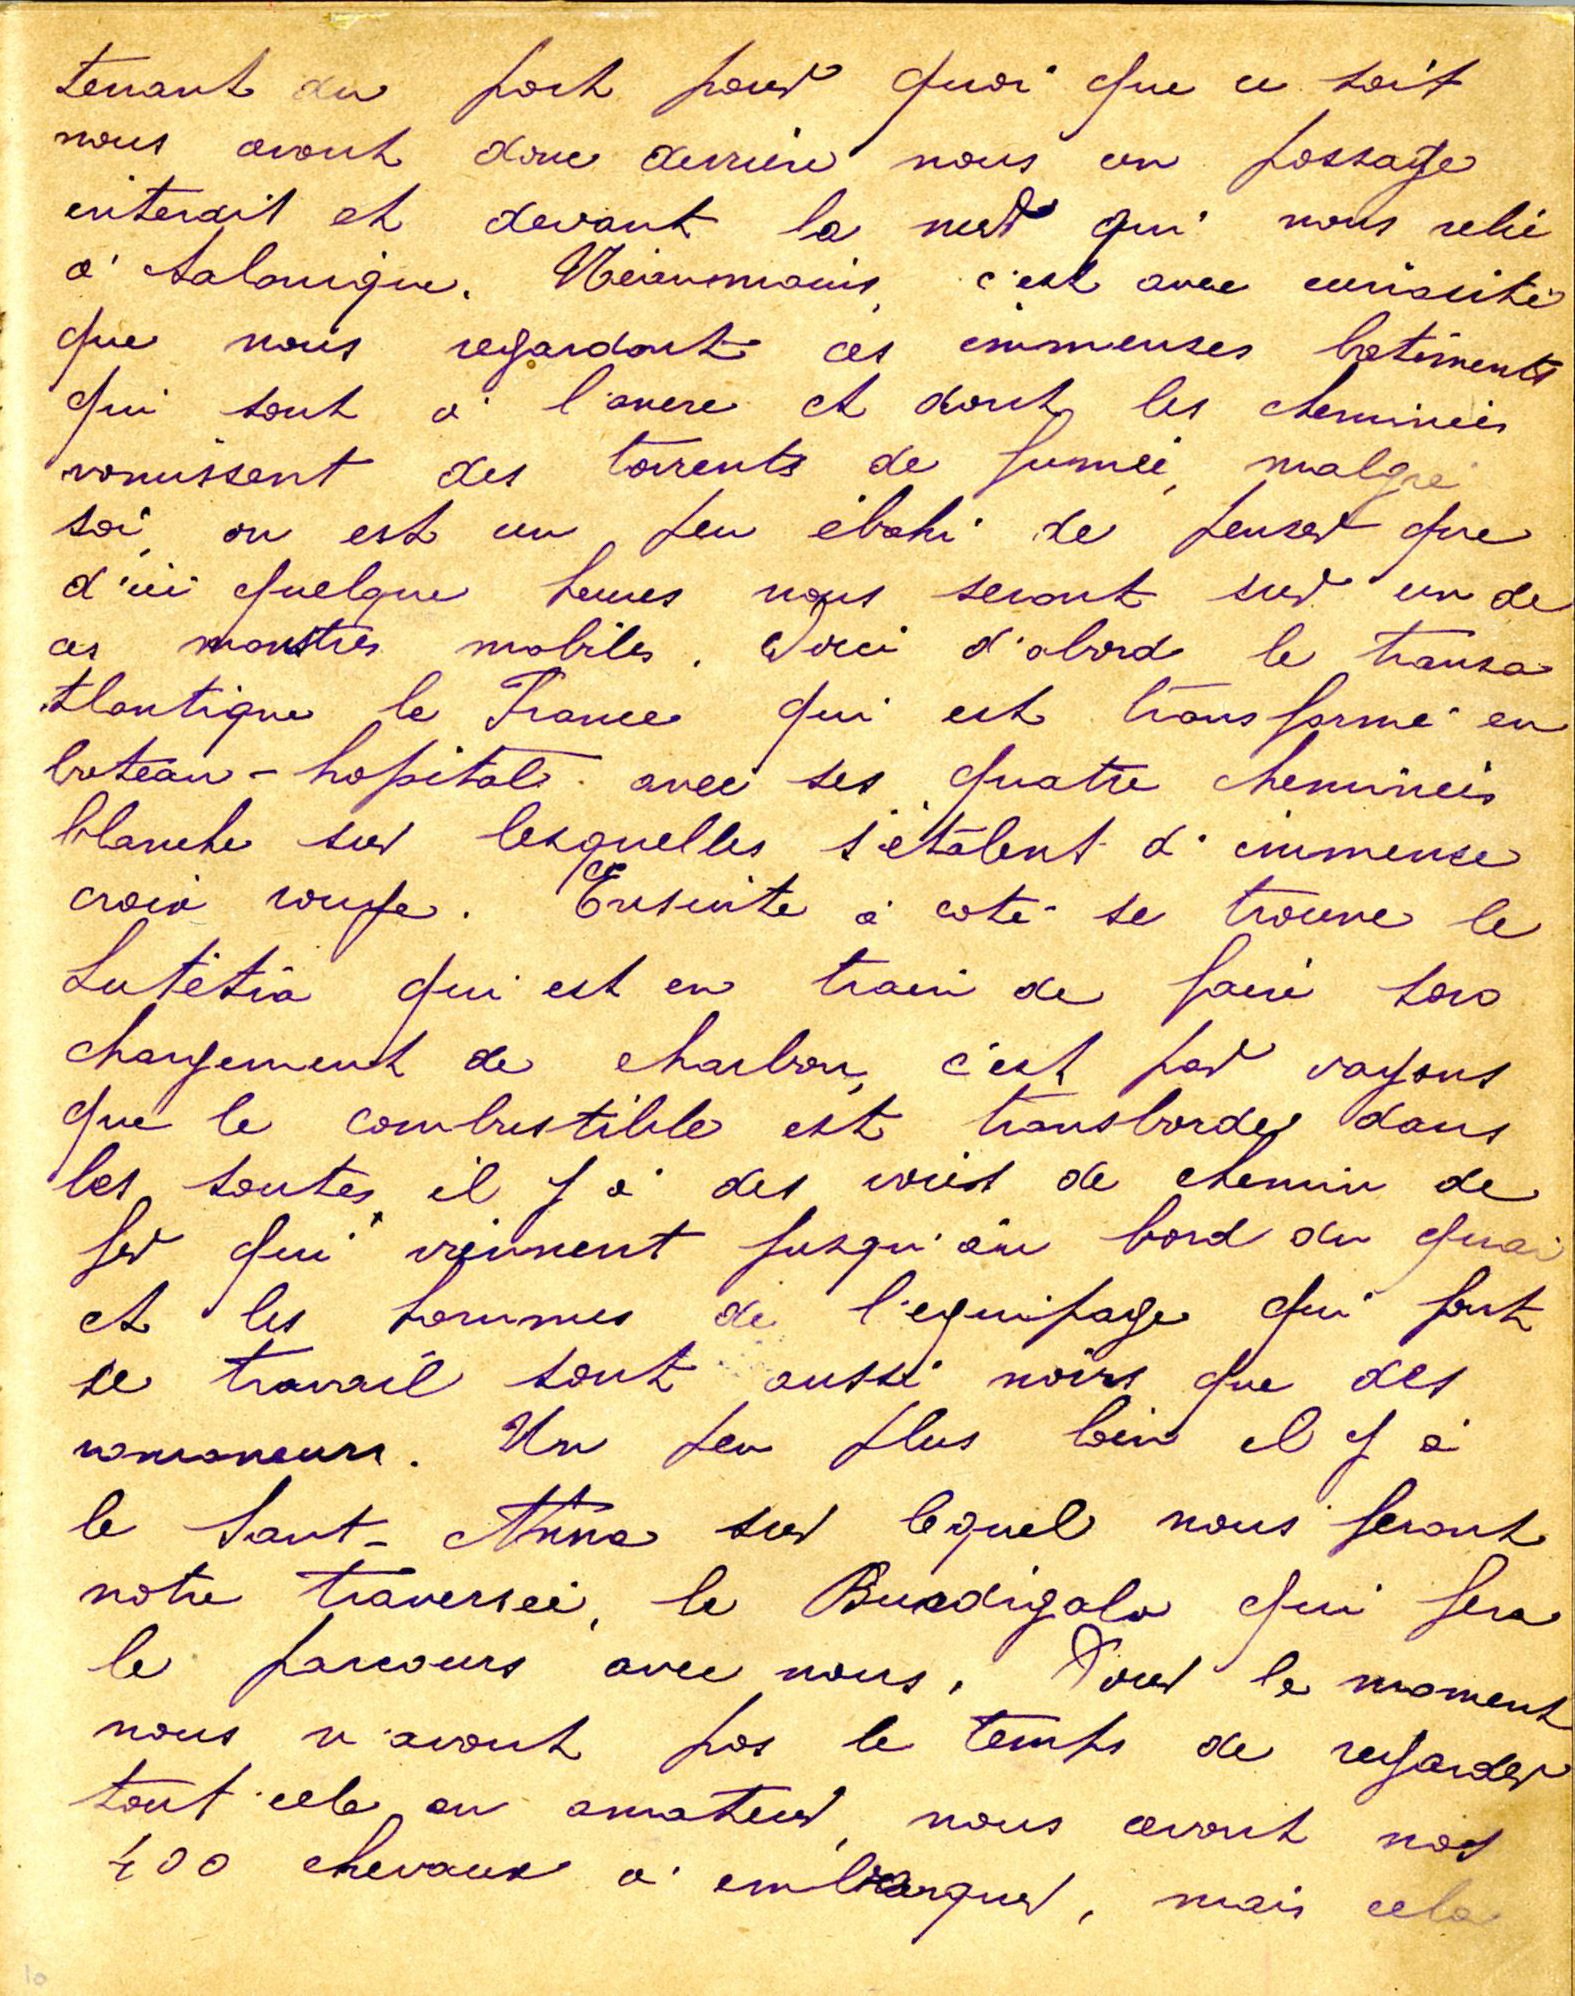 tenant du port pour quoi que ce soit
nous avont donc derrière nous un passage
interdit et devant la mer qui nous relie
à Salonique. Néeanmoins, c'est avec curiosité
que nous regardont ces immenses batiments
qui sont à l'ancre et dont les cheminées
vomissent des torrents de fumée, malgré
soi, on est un peu ébahi de penser que
d'ici quelque heures nous seront sur un de
ces monstres mobiles. Voici d'abord le transa
tlantique le France qui est transformé en
bateau-hopital avec ses quatre cheminées
blanche sur lesquelles s'étalent d'immense
croix rouge. Ensuite à coté se trouve le
Lutétia qui est en train de faire son
chargement de charbon, c'est par wagons
que le combustible est transborder dans
les soutes, il y à des voies de chemin de
fer qui viennent jusqu'au bord du quai
et les hommes de l'equipage qui font
se travail sont aussi noirs que des
ramoneurs. Un peu plus loin il y à
le Sant-Anna sur lequel nous feront
notre traversée, le Burdigala qui fera
le parcours avec nous. Pour le moment
nous n'avont pas le temps de regarder
tout cela en amateur, nous avont nos
400 chevaux à embarquer, mais cela
10